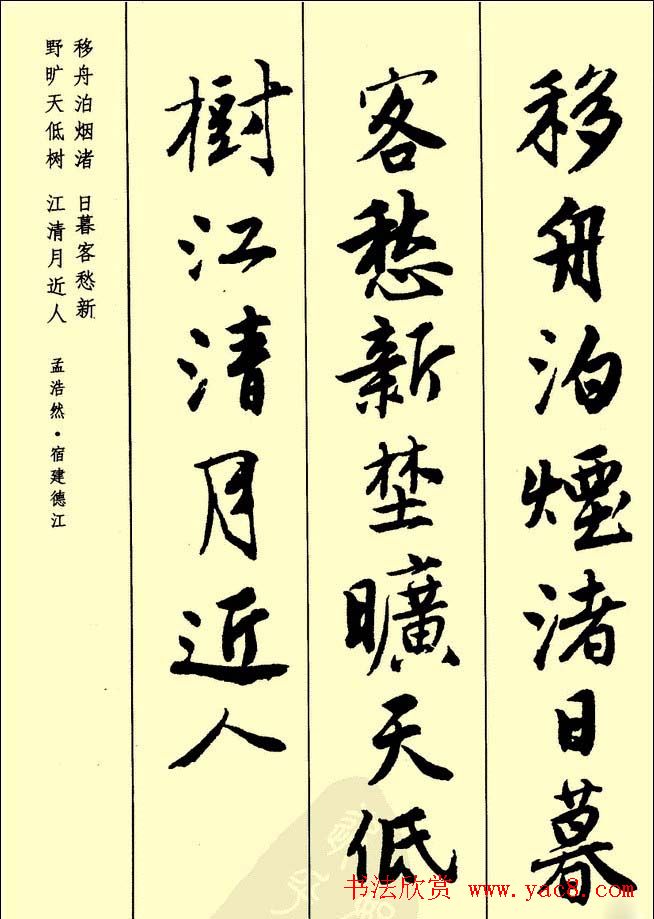 移舟泊煙渚日暮
客愁新埜曠天低
樹江清月近人
移舟泊烟渚 日暮客愁新
野旷天低树 江清月近人 孟浩然·宿建德江
书法欣赏 www.yac8.com